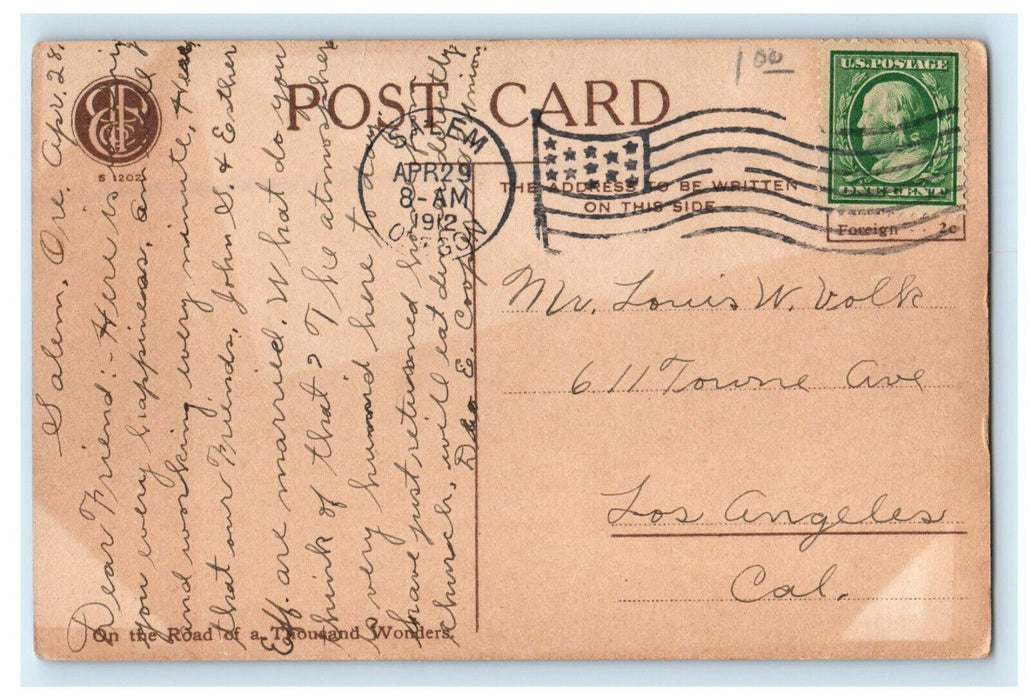 POST CARD
S 1202
1.00
U.S. POSTAGE
ONE CENT
Foreign 2c
SALEM
APR 29
8-AM
1912
OREGON
THE ADDRESS TO BE WRITTEN
ON THIS SIDE
Salem, Ore. Apr. 28,
Dear Friend:- Here is wishing
you every happiness, am well
and working every minute, Hear
that our Friends, John G. & Esther
Eff. are married. What do you
think of that? The atmosphere
is very humid here to day
have just returned from
church, will eat directly.
E. Cooper
Union
Mr. Louis W. Volk
611 Towne Ave
Los Angeles
Cal.
On the Road of a Thousand Wonders.